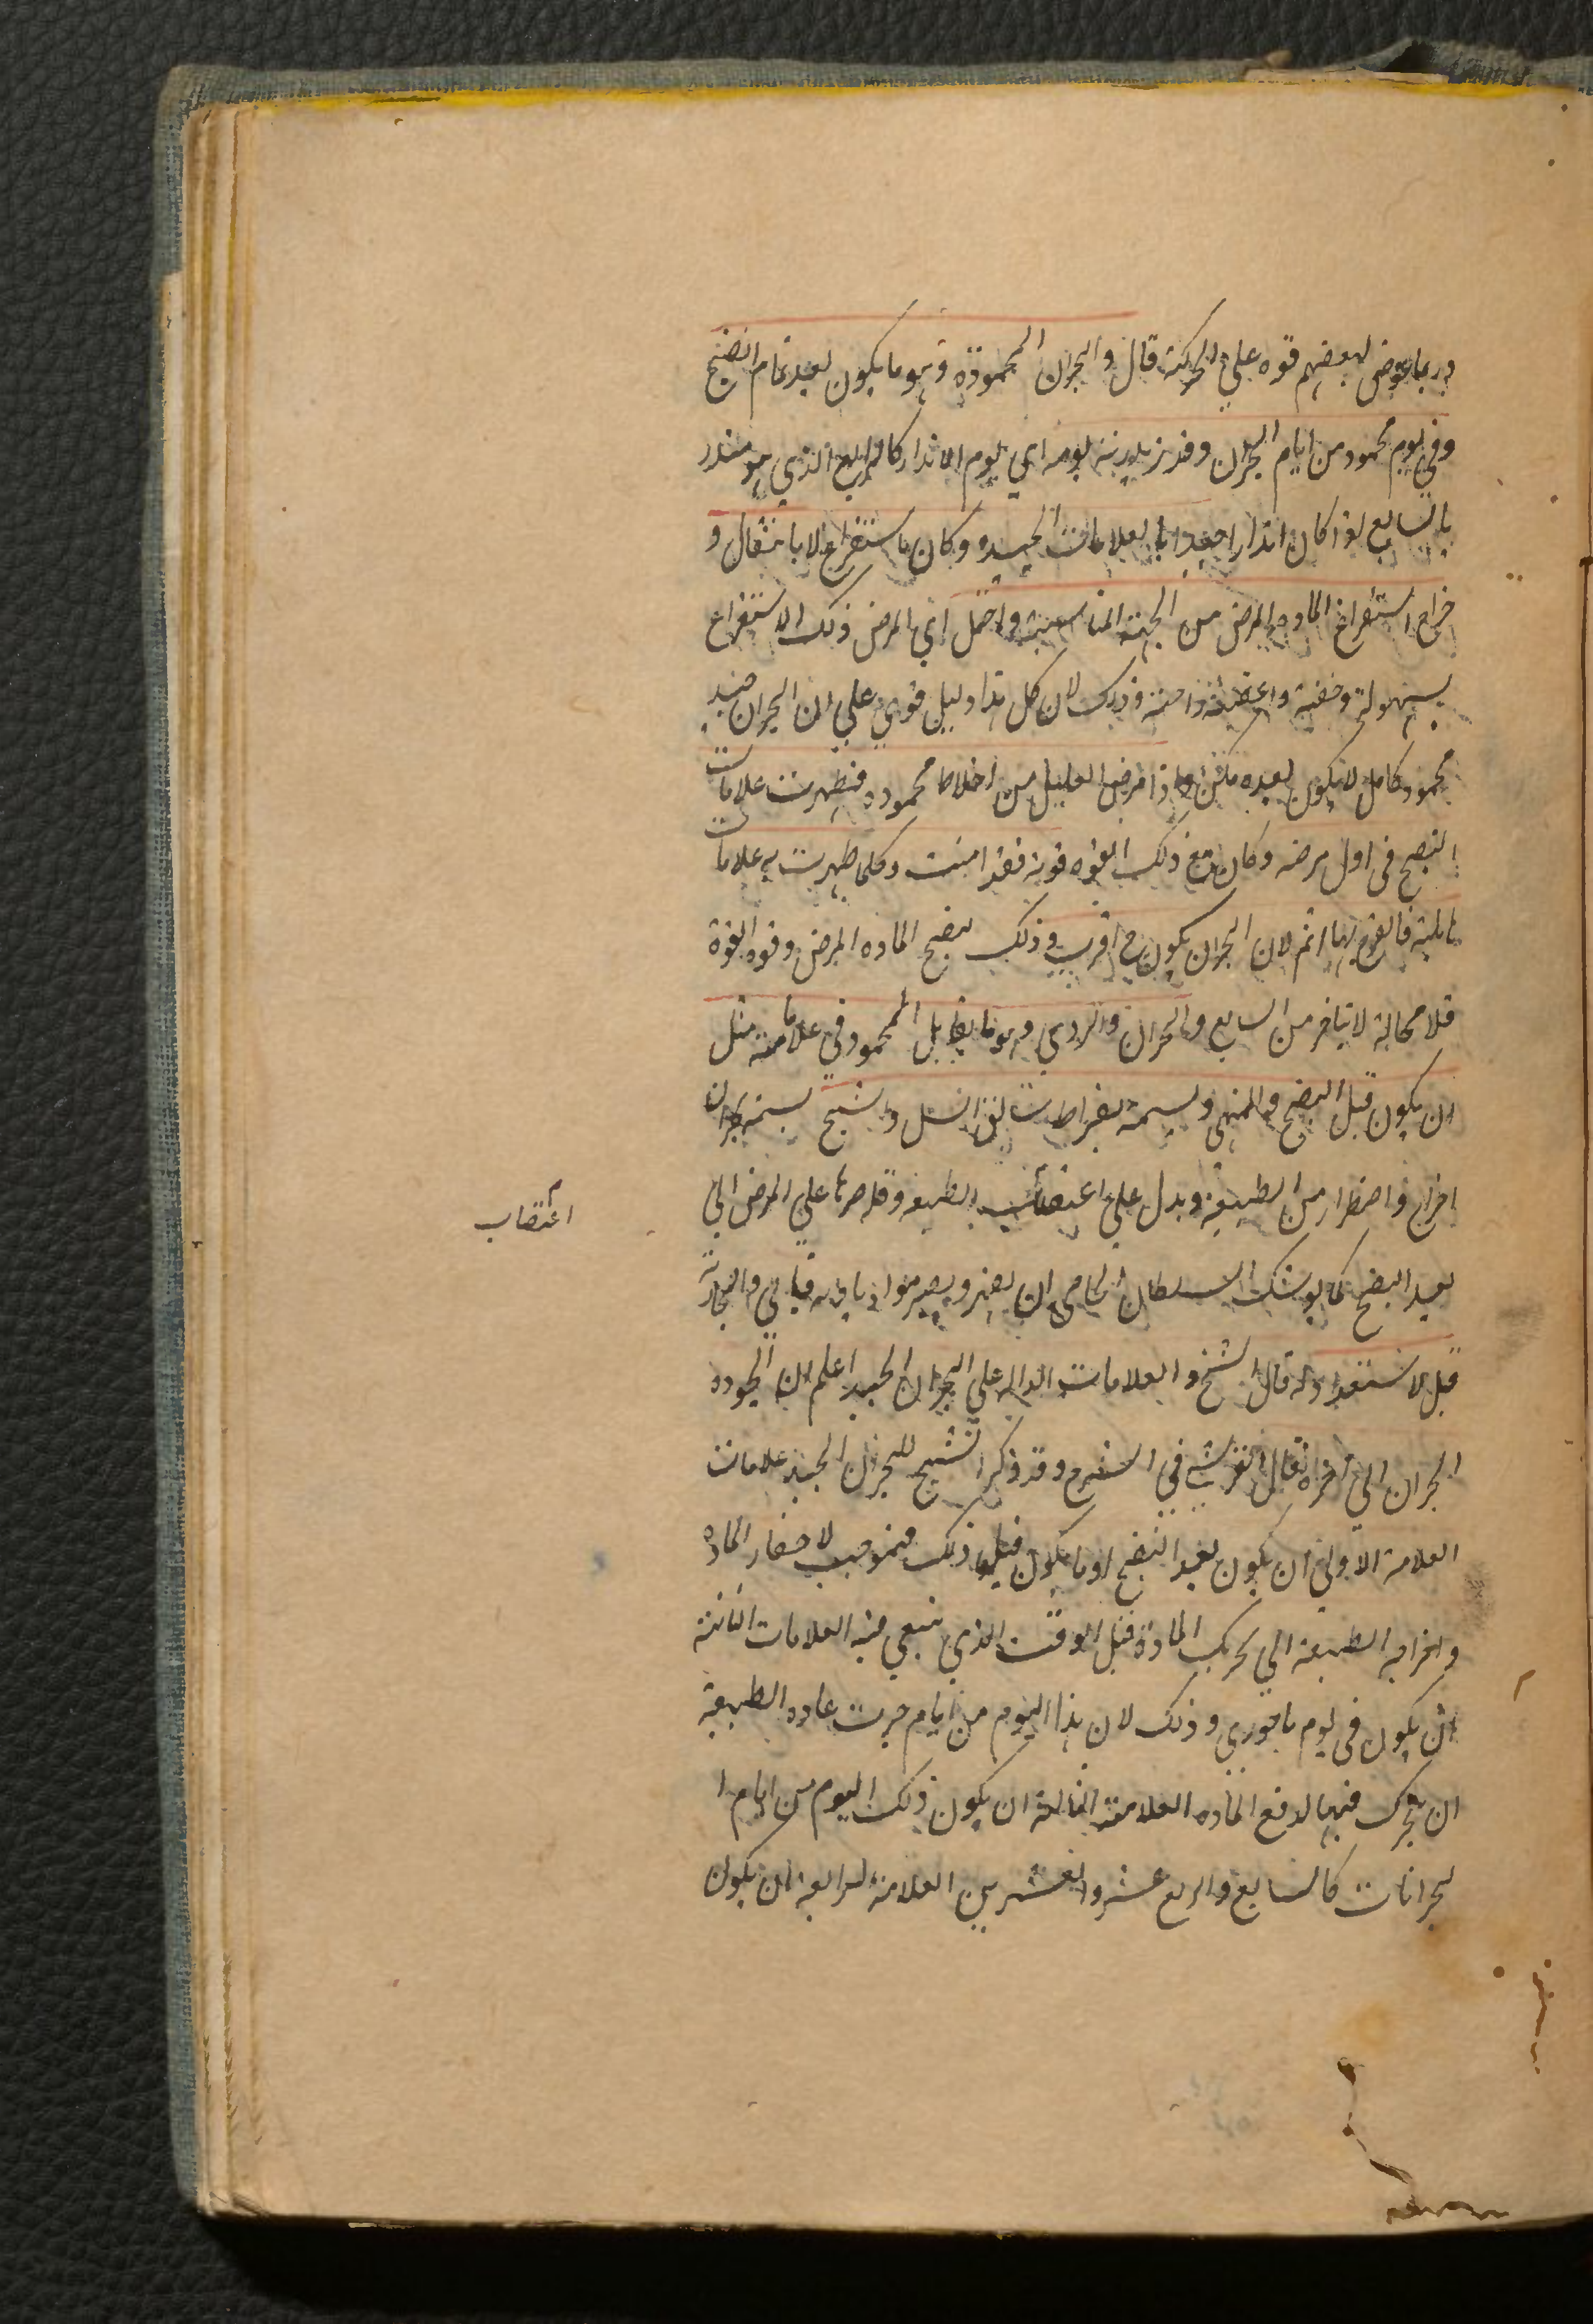 وربما عوض لبعضهم قوه علي الحركة قال والبحران المحمودة وهو ما يكون بعد تمام النضج
وفي يوم محمود من ايام البحران وقد نزيد به يومه اي يوم الانذار كالرابع الذي هو منذر
بالسابع لو كان انذارا جيدا بالعلامات الجيده وكان باستفراغ لا بانتقال و
خراج استفراغ الماده المرض من الجهة المناسبة واحتمل اي المرض ذلك الاستفراغ
بسهولة وخفية واعقبته راحة وذلك لان كل هذا دليل قوي علي ان البحران جيد
محمود كامل لا يكون بعده نكس واذا مرض العليل من اخلاط محموده فظهرت علامات
النضج في اول مرضه وكان مع ذلك القوه قوية فقد امنت وكلما ظهرت به علامات
هايلة فالفرح بها اتم لان البحران يكون ح اقرب وذلك لنضج الماده المرض وقوه القوة
فلا محالة لا يتاخر من السابع والبحران والردي وهو ما يقابل المحمود في علاماته مثل
ان يكون قبل النضج والمنتهى ويسمة بقراط سابق السل والشيخ يسميه بحران
اخراج واضطرار من الطبيعة ويدل علي اغتصاب الطبيعه وقله صبرها علي المرض الي
اغتصاب
بعد النضج كما يوشك السلطان الحامي ان يضجر ويصير مواذيا به فياتي والمحاربة
قبل الاستعداد له قال الشيخ والعلامات الداله علي البحران الجيد اعلم ان الجوده
البحران الي اخره قال القرشي في الشرح وقد ذكر الشيخ للبحران الجيد علامات
العلامة الاولي ان يكون بعد النضج اذ ما يكون قبل ذلك فهو موجب لاحضار الماده
واخراجه الطبيعة الي تحريك المادة قبل الوقت الذي ينبغي فيه العلامات الثانية
ان يكون في يوم باحوري وذلك لان هذا اليوم من ايام جرت عاده الطبيعة
ان يتحرك فيها لدفع الماده العلامة الثالثة ان يكون ذلك اليوم من ايام ا
لبحرانات كالسابع والرابع عشر والعشرين العلامة الرابعة ان يكون